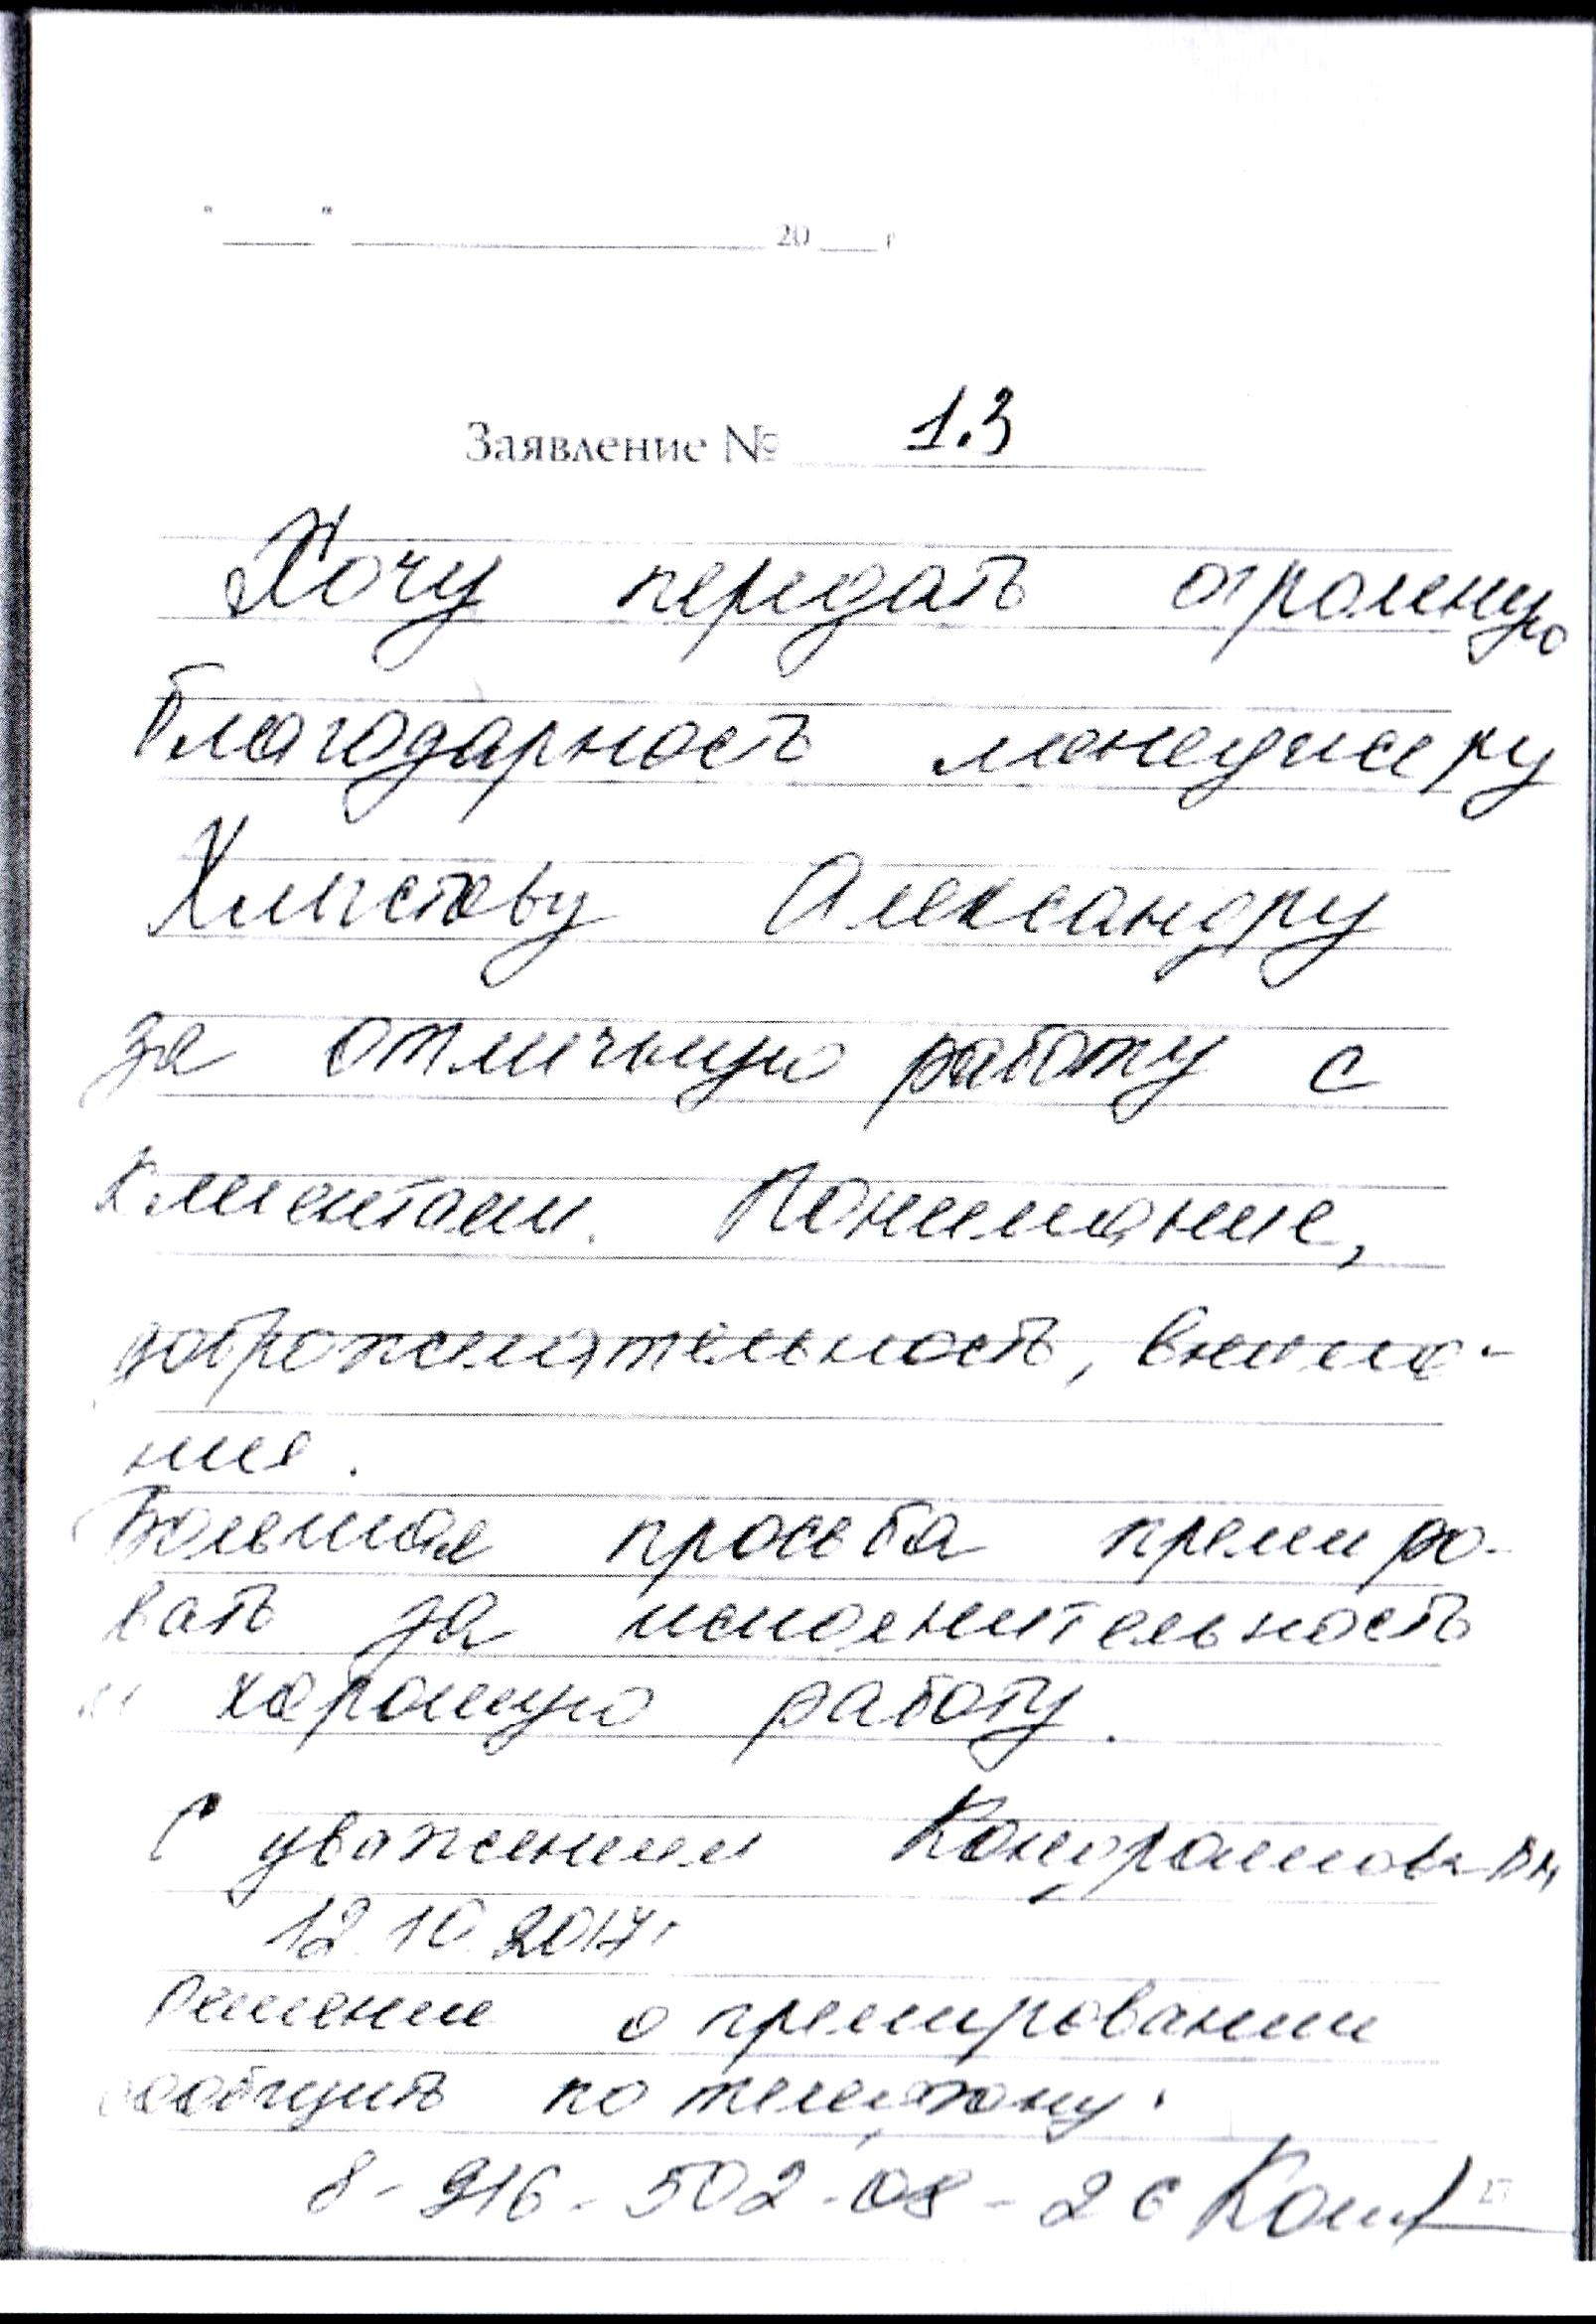 "____" ____________ 20___г
Заявление № 13
Хочу передать огромную
благодарность менеджеру
Хлыстову Александру
за отличную работу с
клиентами. Понимание,
доброжелательность, внима-
ние.
Большая просьба премиро-
вать за исполнительность
и хорошую работу.
С уважением Кондрашова
12.10.2017г
Решение о премировании
сообщить по телефону:
8-916-502-08-26